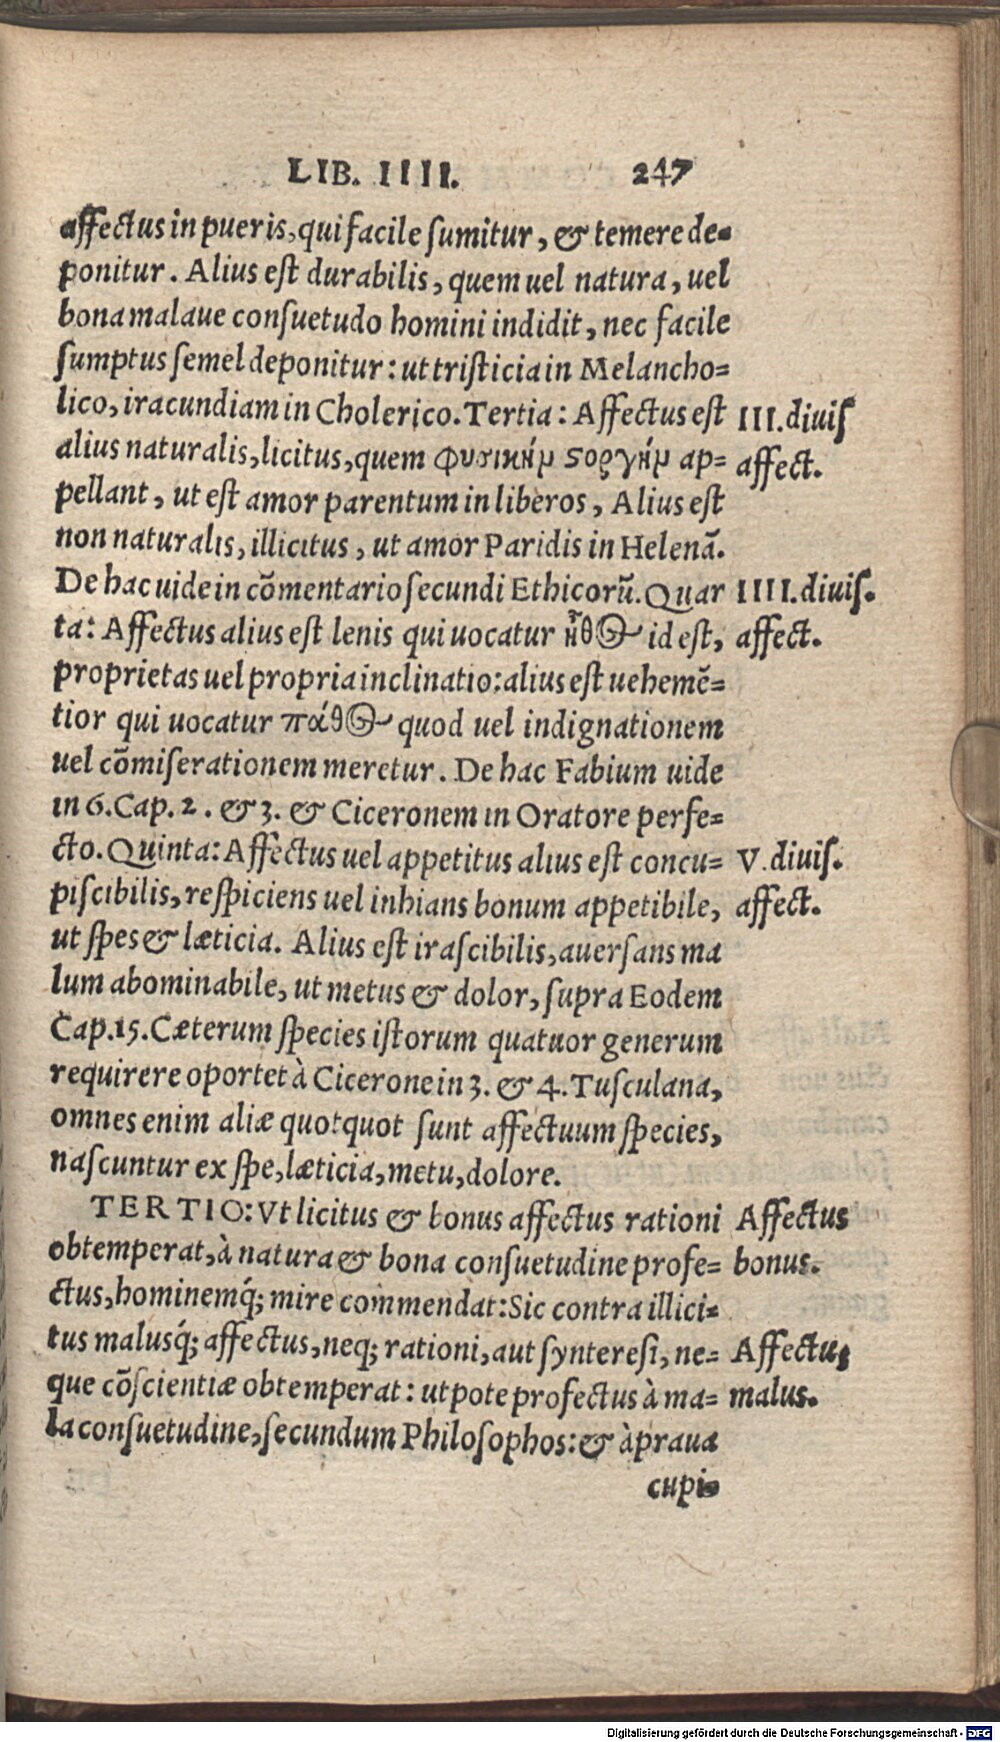 LIB. IIII. 247
affectus in pueris, qui facile sumitur, & temere de-
ponitur. Alius est durabilis, quem uel natura, uel
bona malaue consuetudo homini indidit, nec facile
sumptus semel deponitur: ut tristicia in Melancho=
lico, iracundiam in Cholerico. Tertia: Affectus est
III. diuis
alius naturalis, licitus, quem φυσικὴν ϛοργὴν ap=
affect.
pellant, ut est amor parentum in liberos, Alius est
non naturalis, illicitus, ut amor Paridis in Helenã.
De hac uide in cõmentario secundi Ethicorũ. Quar
IIII. diuis.
ta: Affectus alius est lenis qui uocatur ἦθος id est,
affect.
proprietas uel propria inclinatio: alius est uehemẽ=
tior qui uocatur πάθος quod uel indignationem
uel cõmiserationem meretur. De hac Fabium uide
in 6. Cap. 2. & 3. & Ciceronem in Oratore perfe=
cto. Quinta: Affectus uel appetitus alius est concu=
V. diuis.
piscibilis, respiciens uel inhians bonum appetibile,
affect.
ut spes & læticia. Alius est irascibilis, auersans ma
lum abominabile, ut metus & dolor, supra Eodem
Cap. 15. Cæterum species istorum quatuor generum
requirere oportet à Cicerone in 3. & 4. Tusculana,
omnes enim aliæ quotquot sunt affectuum species,
nascuntur ex spe, læticia, metu, dolore.
TERTIO: Vt licitus & bonus affectus rationi
Affectus
obtemperat, à natura & bona consuetudine profe=
bonus.
ctus, hominemq́; mire commendat: Sic contra illici-
tus malusq́; affectus, neq; rationi, aut synteresi, ne=
Affectus
que cõscientiæ obtemperat: utpote profectus à ma=
malus.
la consuetudine, secundum Philosophos: & à praua
cupi-
Digitalisierung gefördert durch die Deutsche Forschungsgemeinschaft - DFG